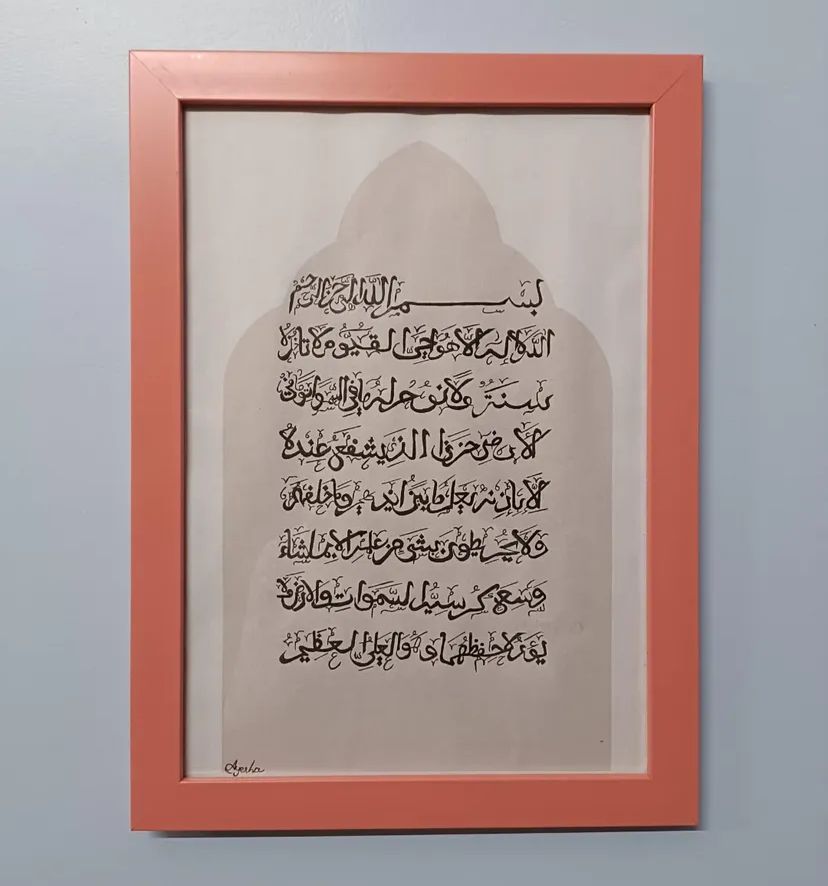 بســـم الله الرحمن الرحيم
الله لا إله إلا هو الحي القيوم لا تأخذه
سنة ولا نوم له ما في السموات وما في
الأرض من ذا الذي يشفع عنده
إلا بإذنه يعلم ما بين أيديهم وما خلفهم
ولا يحيطون بشيء من علمه إلا بما شاء
وسع كرسيه السموات والأرض ولا
يؤده حفظهما وهو العلي العظيم
Ayesha